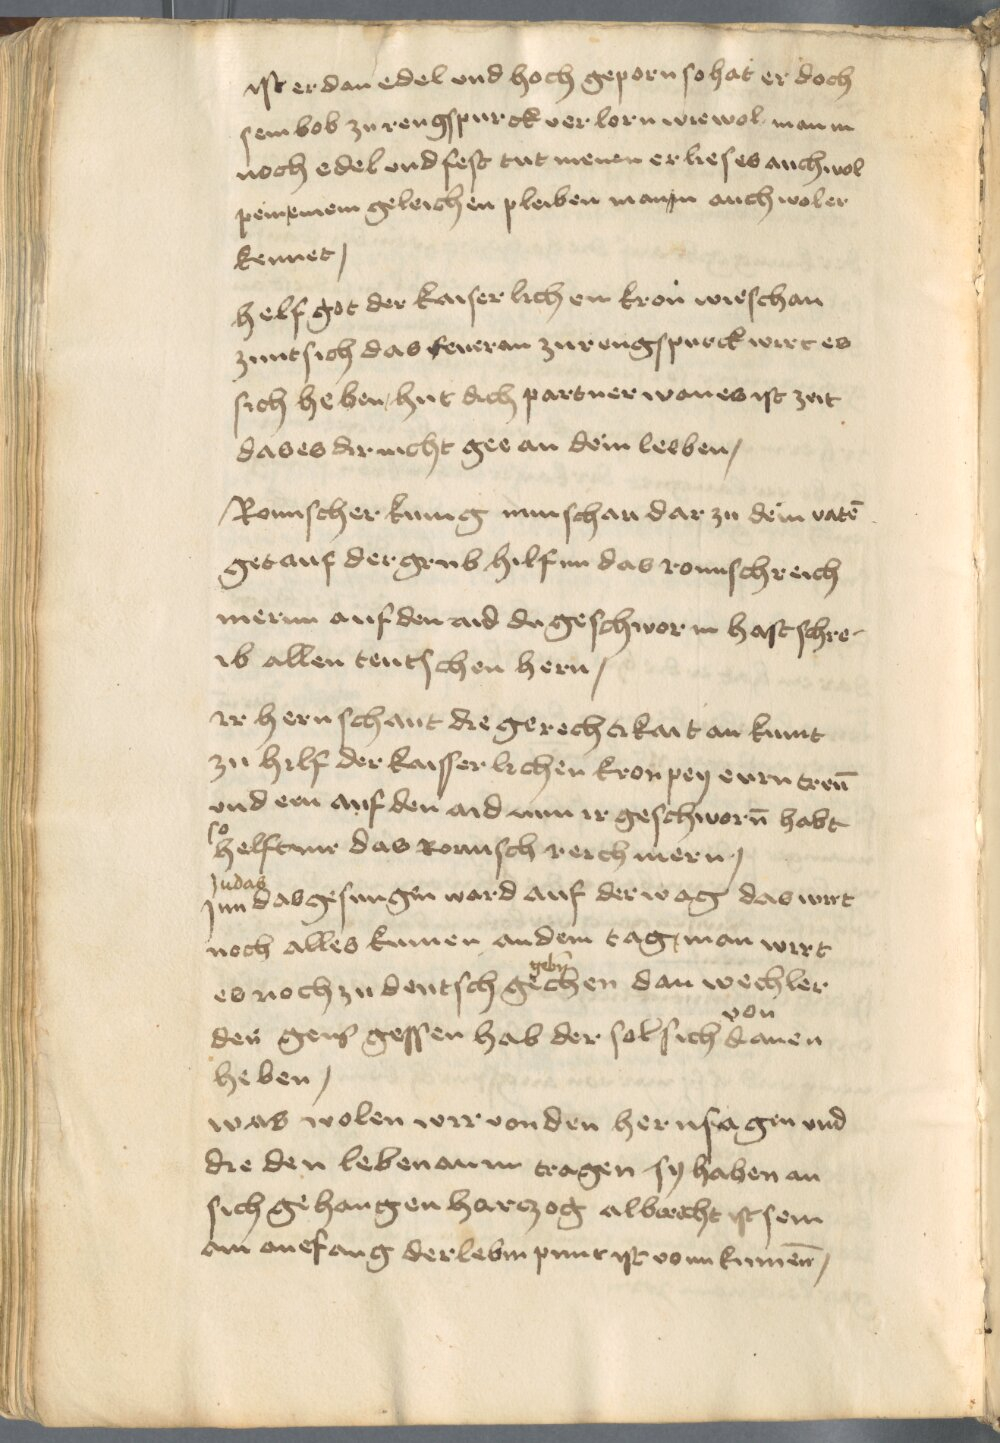 ist er dan edel vnd hoch geporn so hat er doch
sein lob zu rengspurck verlorn wie wol man in
noch edel vnd fest tut nenen er lies es auch wol
pein einem geleichen pleiben man in auch wol er
kennet /
helf got der kaiserlichen kron wie schan
zunt sich das feuer an zu rengspurck wirt es
sich heben / hut dich partner wan es ist zeit
das es dir nicht gee an dein leben /
Romischer kunig nun schau dar zu dein vatē
get auf der grub hilf im das romisch reich
merun auf den aid du geschworn hast schre-
ib allen teutschen hern /
ir hern schaut die gerechtikait an kumt
zu hilf der kaisserlichen kron pey eurn treū
vnd een auf den aid nun ir geschworn̄ habt
so helft mir das Romisch reich mern /
Judas Inn das gesungen ward auf der wag das wirt
noch alles kumen an dem tag / man wirt
es noch zu deutsch gechen dan wechler
den gens gessen hab der sol sich von danen
heben /
was wolen wir von den hern sagen vnd
die den leben an im tragen sy haben an
sich gehangen harczog albrecht ist sein
ain anefang der lebm punt ist vom kumen̄ /